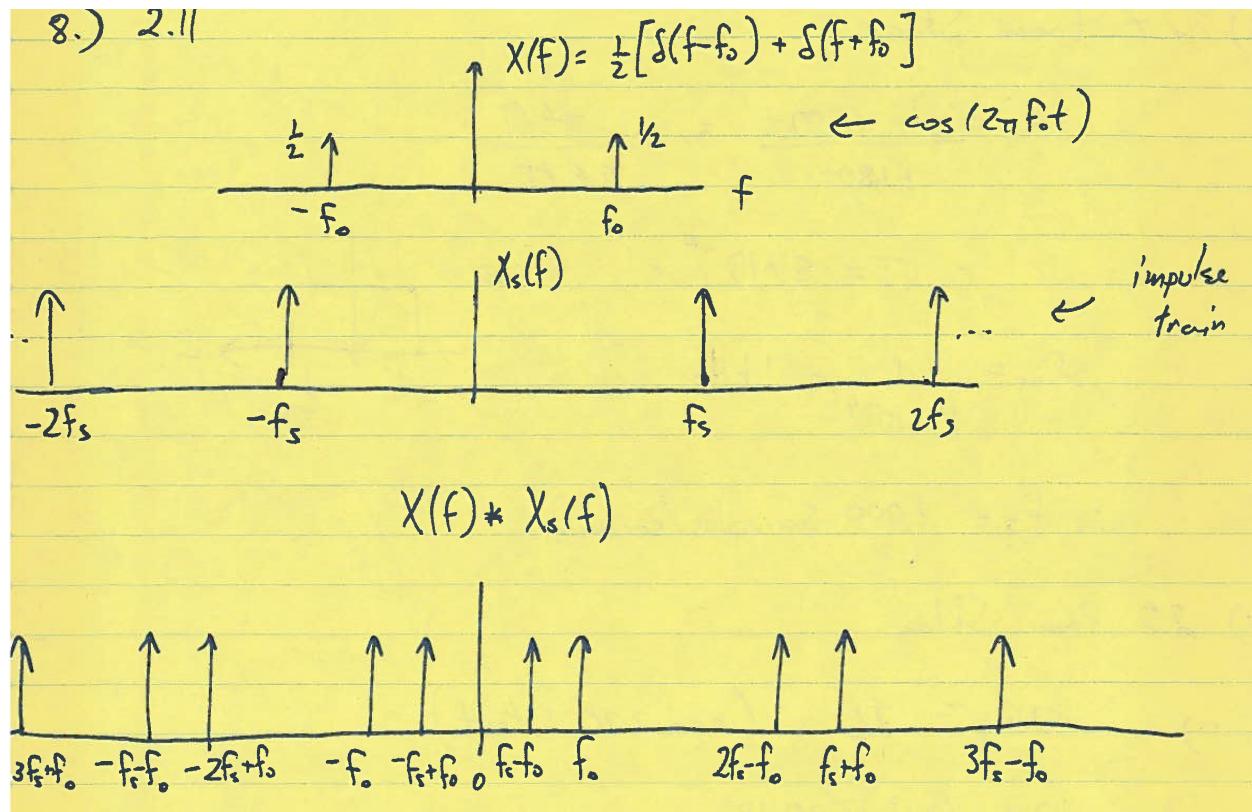 8.) 2.11
X(f) = ½[δ(f-f₀) + δ(f+f₀]
← cos(2πf₀t)
½ ½
-f₀ f₀ f
Xₛ(f)
impulse
train
.. ...
-2fₛ -fₛ fₛ 2fₛ
X(f) * Xₛ(f)
3fₛ+f₀ -fₛ-f₀ -2fₛ+f₀ -f₀ -fₛ+f₀ 0 fₛ-f₀ f₀ 2fₛ-f₀ fₛ+f₀ 3fₛ-f₀